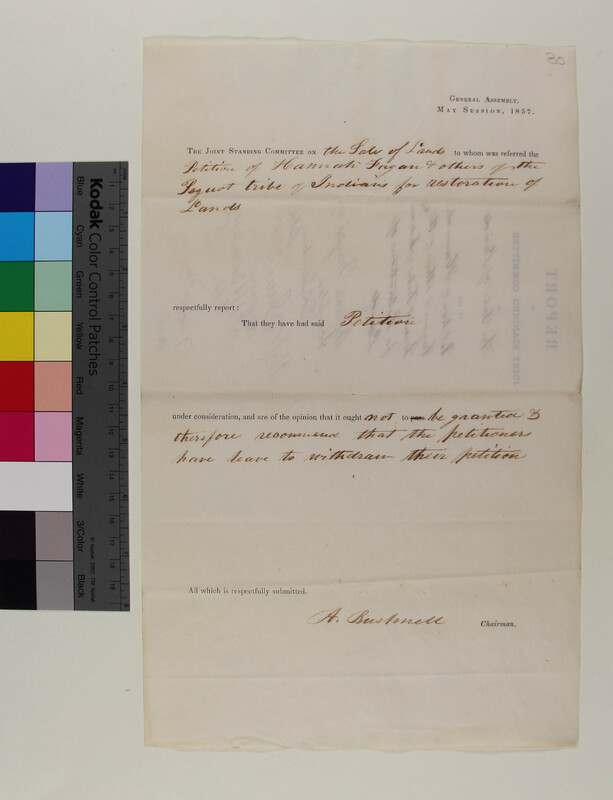 30
General Assembly,
May Session, 1857.
The Joint Standing Committee on the Sale of Lands to whom was referred the
Petition of Hannah Fagan & others of the
Pequot tribe of Indians for restoration of
Lands
respectfully report:
That they have had said Petition
under consideration, and are of the opinion that it ought not to be granted &
therefore recommend that the petitioners
have leave to withdraw their petition
All which is respectfully submitted.
A. Bushnell Chairman.
REPORT
JOINT STANDING COMMITTEE
Kodak Color Control Patches
Blue
Cyan
Green
Yellow
Red
Magenta
White
3/Color
Black
© Kodak, 2007 TM: Kodak